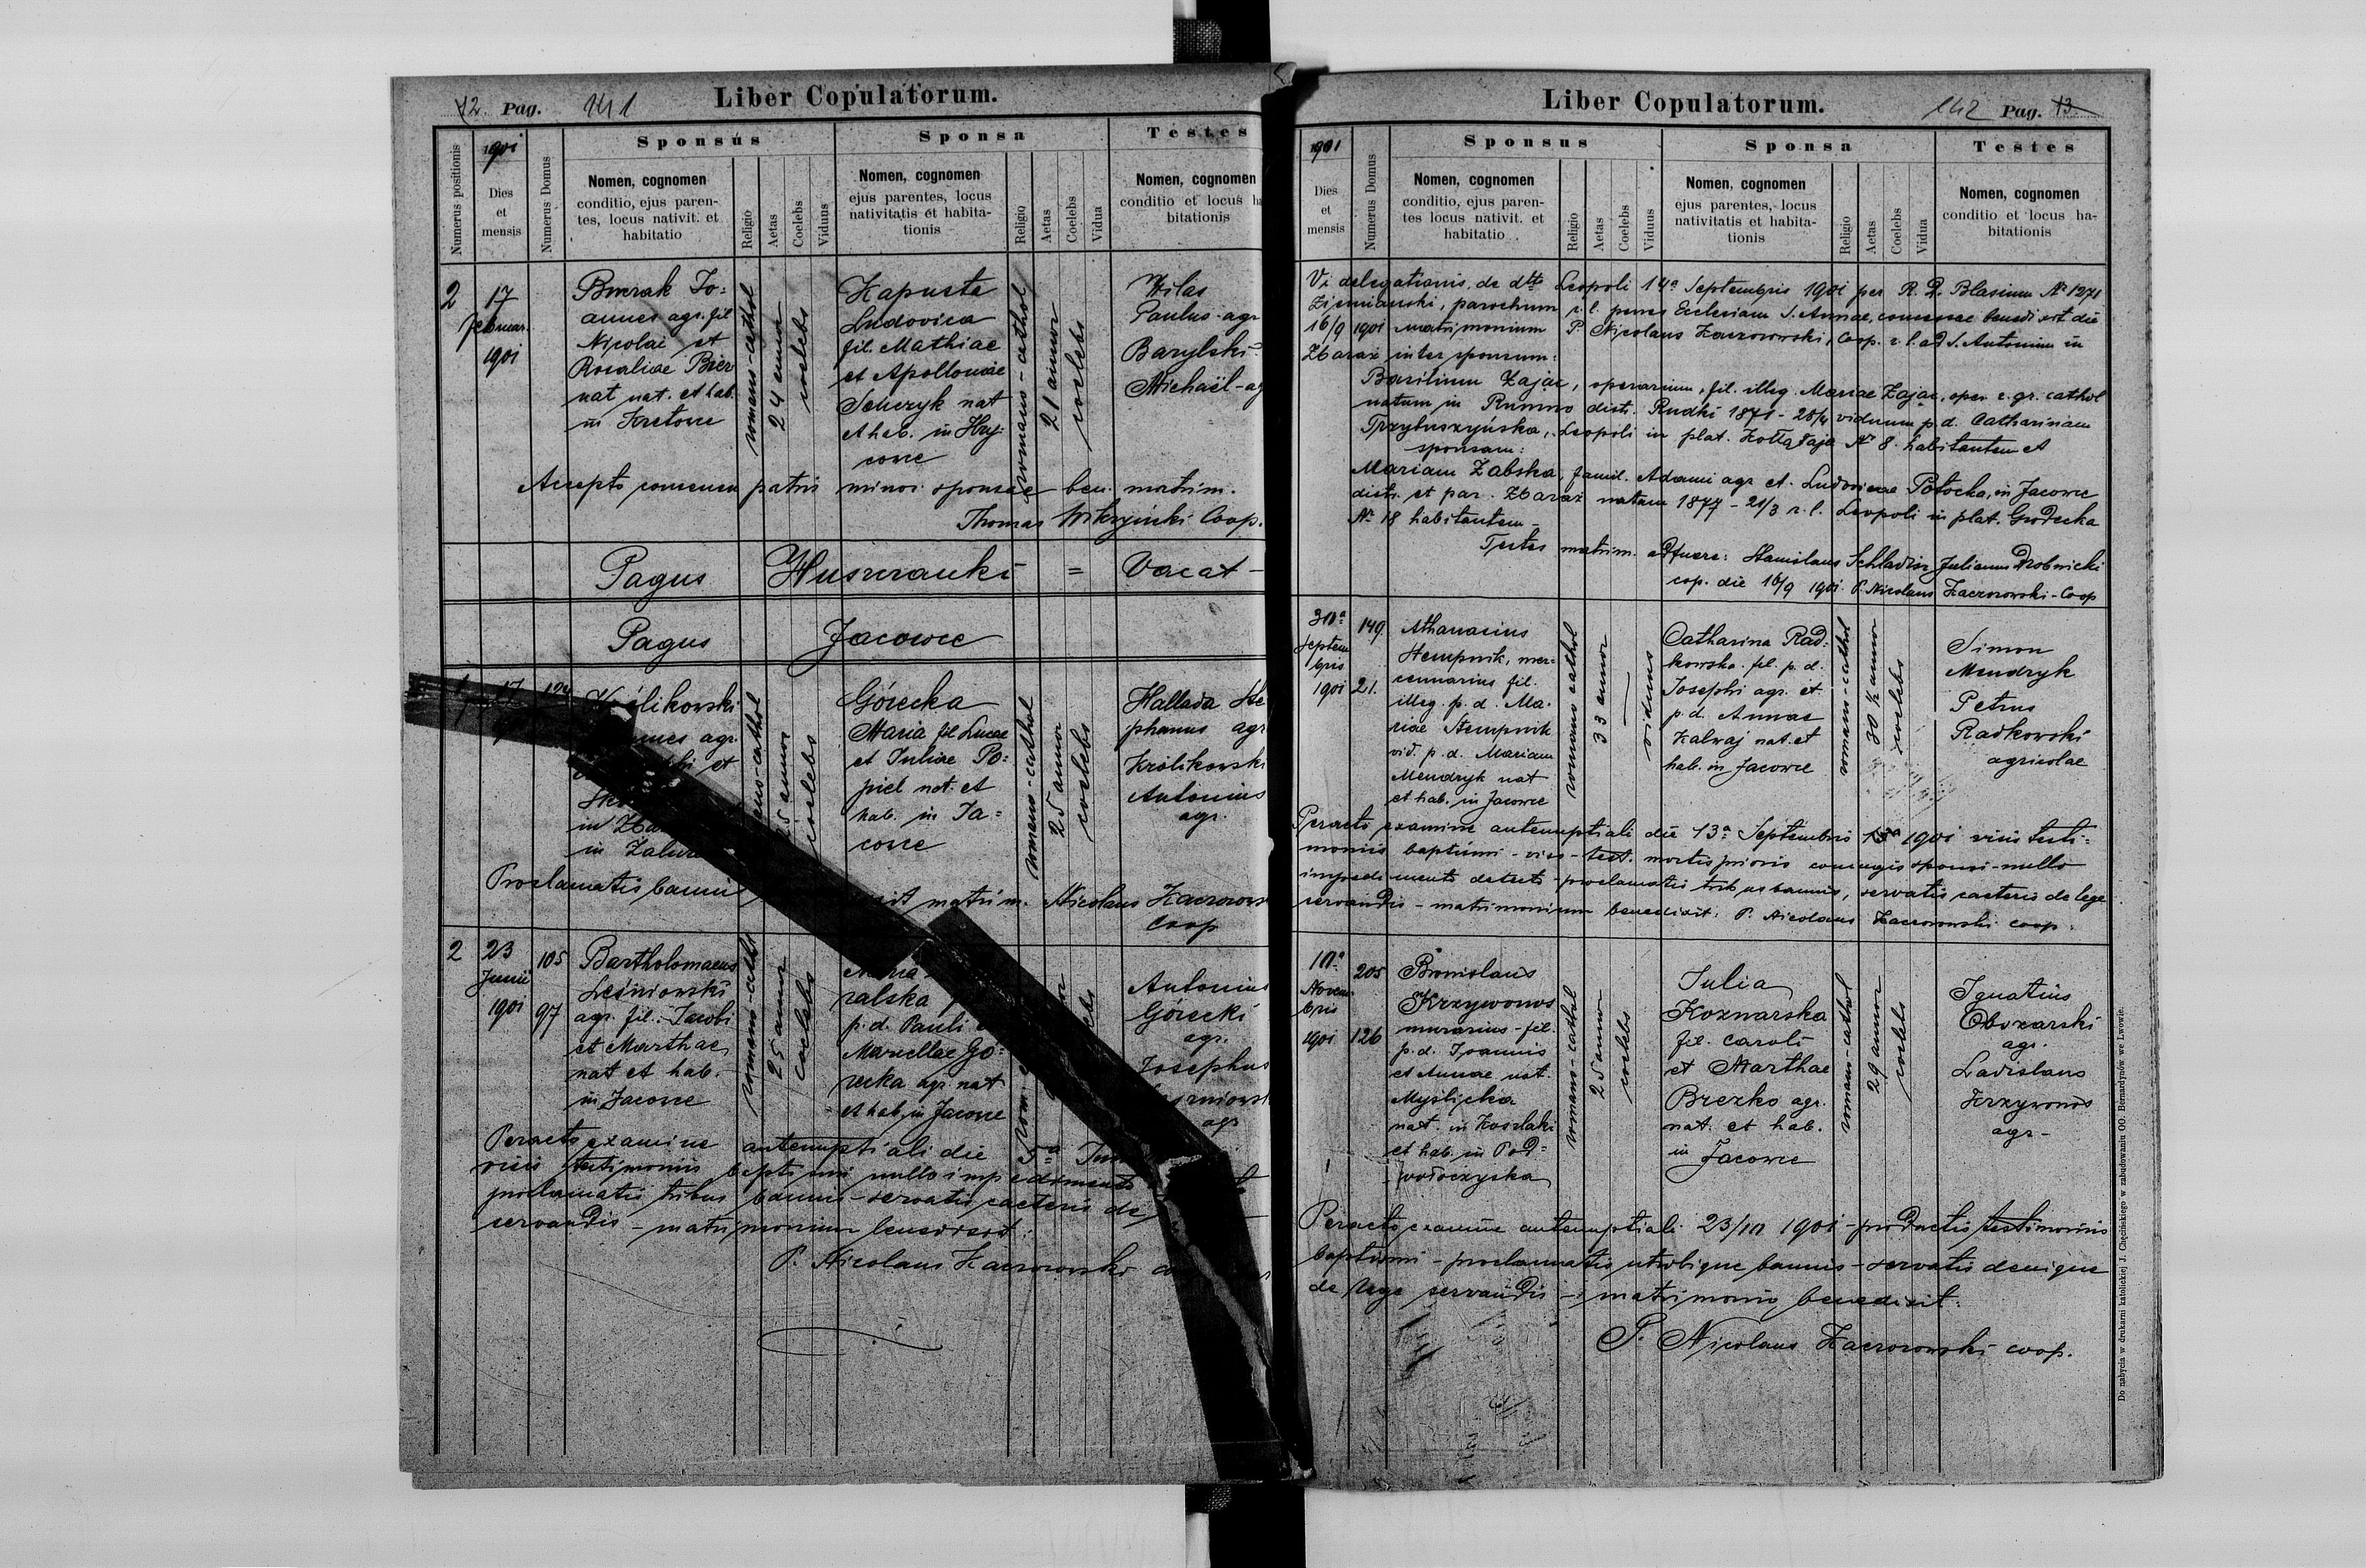 12. Pag. 141 Liber Copulatorum.
Numerus positionis
1901
Dies
et
mensis
Numerus Domus
Sponsus
Nomen, cognomen
conditio, ejus paren-
tes, locus nativit. et
habitatio
Religio
Aetas
Coelebs
Viduus
Sponsa
Nomen, cognomen
ejus parentes, locus
nativitatis et habita-
tionis
Religio
Aetas
Coelebs
Vidua
Testes
Nomen, cognomen
conditio et locus ha
bitationis
2
17
Februar.
1901
Burak Jo=
annes agr. fil
Nicolai et
Rosaliae Bier
nat nat. et hab.
in Kretowce
romano-cathol
24 annor
coelebs
Kapusta
Ludovica
fil. Mathiae
et Apolloniae
Senczyk nat
et hab. in Hry-
cowce
romano-cathol
21 annor
coelebs
Paulus-agr
Barylski
Michaël-ag
Accepto consensu patris minor. sponsae ben. matrim.
Thomas Coop.
Pagus Huszczanki = Vacat -
Pagus Jacowce
1 17 124
Królikowski
agr.
et
in
in
cathol
25 annor
coelebs
Górecka
Maria fil Lucae
et Juliae Po=
piel nat. et
hab. in Ja=
cowce
romano-cathol
25 annor
coelebs
Hallada Ste
phanus agr
Królikowski
Antonius
agr.
Proclamatis bannis
matrim. Nicolaus Kaczorows
Coop
2
23
Junii
1901
105
97
Bartholomaeus
Leśniowski
agr. fil. Jacobi
et Marthae
nat et hab.
in Jacowce
romano-cath
25 annor
coelebs
Maria
ralska
p.d. Pauli
Marcellae Gó=
recka agr. nat
et hab. in Jacowce
Antonius
Górecki
agr.
Josephus
agr
Peracto examine antenuptiali die 5ª Jun
visis testimoniis baptismi nullo impedimento
proclamatis tribus bannis-servatis caeteris de
servandis - matrimonium benedixit:
P. Nicolaus Kaczorowski
Liber Copulatorum. 142 Pag. 13
1901
Dies
et
mensis
Numerus Domus
Sponsus
Nomen, cognomen
conditio, ejus paren-
tes locus nativit. et
habitatio
Religio
Aetas
Coelebs
Viduus
Sponsa
Nomen, cognomen
ejus parentes, locus
nativitatis et habita-
tionis
Religio
Aetas
Coelebs
Vidua
Testes
Nomen, cognomen
conditio et locus ha-
bitationis
Vi delegationis, de dtto Leopoli 14ª Septembris 1901 per R. D. Blasium Nº 1271
Ziemiański, parochum r. l. penes Ecclesiam S. Annae, concessae benedixit die
16/9 1901 matrimonium P. Nicolaus Kaczorowski, Coop. r. l. ad S. Antonium in
Zbaraż inter sponsum:
Basilium Zając, operarium, fil. illeg. Mariae Zając, oper. r. gr. cathol
natum in Rumno distr. Rudki 1871 - 28/4 viduum p. d. Catharinam
Trzybuszyńska, Leopoli in plat. Kołłątaja Nº 8. habitantem et
sponsam:
Mariam Zabska, famil. Adami agr et. Ludovicae Potocka, in Jacowce
distr. et par. Zbaraż natam 1877 - 21/3 r. l. Leopoli in plat. Grodecka
Nº 18 habitantem -
Testes matrim. adfuere: Stanislaus Schladisz Julianus Drobnicki
cop. die 16/9 1901. P. Nicolaus Kaczorowski - Coop
30ª
Septem
bris
1901
149.
21.
Athanasius
Stempnik, mer=
cenarius fil.
illeg. p. d. Ma-
riae Stempnik
vid. p. d. Mariam
Mendryk nat
et hab. in Jacowce
romano cathol
33 annor
viduus
Catharina Rad=
kowska fil. p. d.
Josephi agr. et
p. d. Annae
Zalwaj nat. et
hab. in Jacowce
romano-cathol
30 ½ annor
coelebs
Simon
Mendryk
Petrus
Radkowski
agricolae
Peracto examine antenuptiali die 13ª Septembris 1901 visis testi=
moniis baptismi - viso - test. mortis prioris conjugis sponsi-nullo
impedimento detecto - proclamatis tribus bannis, servatis caeteris de lege
servandis - matrimonium benedixit: P. Nicolaus Kaczorowski coop.
10ª
Novem
bris
1901
205
126
Bronislaus
Krzywonos
murarius - fil.
p. d. Joannis
et Annae nat.
Myślicka
nat. in Koszlaki
et hab. in Pod=
wołoczyska
romano-cathol
25 annor
coelebs
Julia
Koznarska
fil. Caroli
et Marthae
Brezko agr.
nat. et hab.
in Jacowce
romano-cathol
29 annor
coelebs
Ignatius
Obozarski
agr.
Ladislaus
Krzywonos
agr-
Peracto examine antenuptiali 23/10 1901 - productis testimoniis
baptismi - proclamatis utrobique bannis - servatis denique
de lege servandis - matrimonio benedixit:
P. Nicolaus Kaczorowski coop.
Do nabycia w drukarni katolickiej J. Chęcińskiego w zabudowaniu OO. Bernardynów we Lwowie.